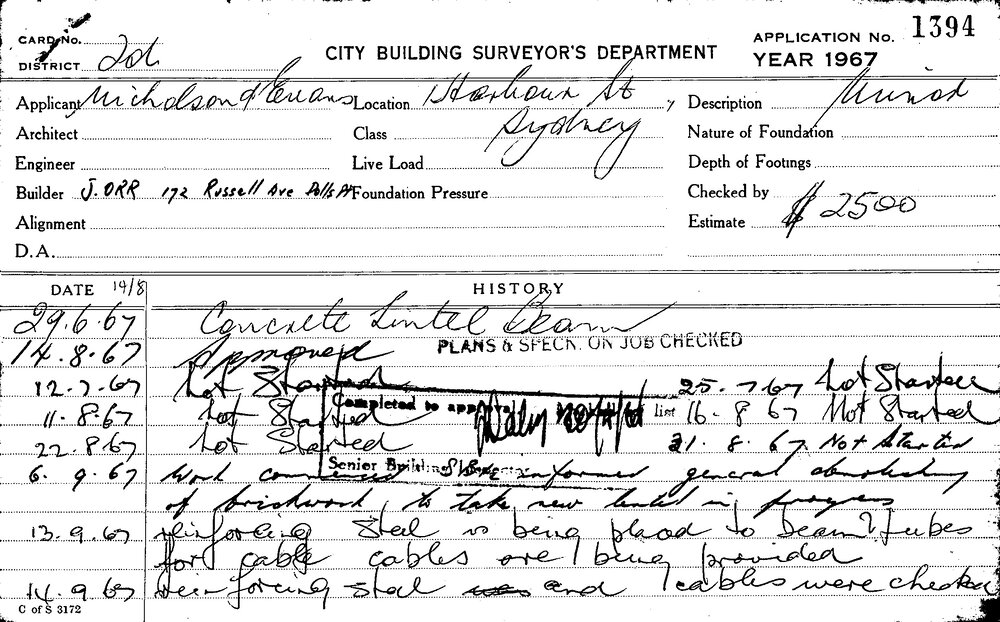 CARD No.
DISTRICT 2d
CITY BUILDING SURVEYOR'S DEPARTMENT
APPLICATION No. 1394
YEAR 1967
Applicant Nicholson & Evans Location Harbour St, Sydney Description Minor
Architect Class Nature of Foundation
Engineer Live Load Depth of Footings
Builder J. ORR 172 Russell Ave Dolls Pt Foundation Pressure Checked by
Alignment Estimate $2500
D.A.
DATE 14/8 HISTORY
29.6.67 Concrete Lintel Beam
14.8.67 Approved PLANS & SPECN. ON JOB CHECKED
12.7.67 Not Started 25.7.67 Not Started
Completed to
11.8.67 Not Started list 16.8.67 Not Started
22.8.67 Not Started 31.8.67 Not Started
Senior Building
6.9.67 Work commenced informed general demolishing
of brickwork to take new lintel in progress
13.9.67 reinforcing steel is being placed to beam & tubes
for cable cables are being provided
14.9.67 reinforcing steel and cables were checked
C of S 3172